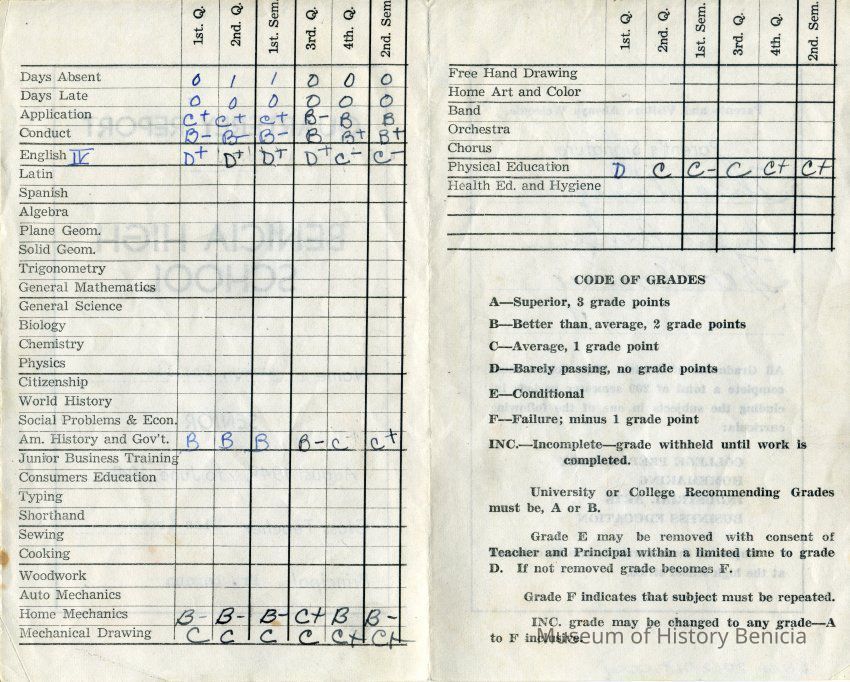 1st. Q. 2nd. Q. 1st. Sem. 3rd. Q. 4th. Q. 2nd. Sem.
Days Absent 0 1 1 0 0 0
Days Late 0 0 0 0 0 0
Application C+ C+ C+ B- B B
Conduct B- B- B- B B+ B+
English IV D+ D+ D+ D+ C- C-
Latin
Spanish
Algebra
Plane Geom.
Solid Geom.
Trigonometry
General Mathematics
General Science
Biology
Chemistry
Physics
Citizenship
World History
Social Problems & Econ.
Am. History and Gov't. B B B B- C+ C+
Junior Business Training
Consumers Education
Typing
Shorthand
Sewing
Cooking
Woodwork
Auto Mechanics
Home Mechanics B- B- B- C+ B B-
Mechanical Drawing C C C C C+ C+
1st. Q. 2nd. Q. 1st. Sem. 3rd. Q. 4th. Q. 2nd. Sem.
Free Hand Drawing
Home Art and Color
Band
Orchestra
Chorus
Physical Education D C C- C C+ C+
Health Ed. and Hygiene
CODE OF GRADES
A—Superior, 3 grade points
B—Better than average, 2 grade points
C—Average, 1 grade point
D—Barely passing, no grade points
E—Conditional
F—Failure; minus 1 grade point
INC.—Incomplete—grade withheld until work is
completed.
University or College Recommending Grades
must be, A or B.
Grade E may be removed with consent of
Teacher and Principal within a limited time to grade
D. If not removed grade becomes F.
Grade F indicates that subject must be repeated.
INC. grade may be changed to any grade—A
to F inclusive.
Museum of History Benicia